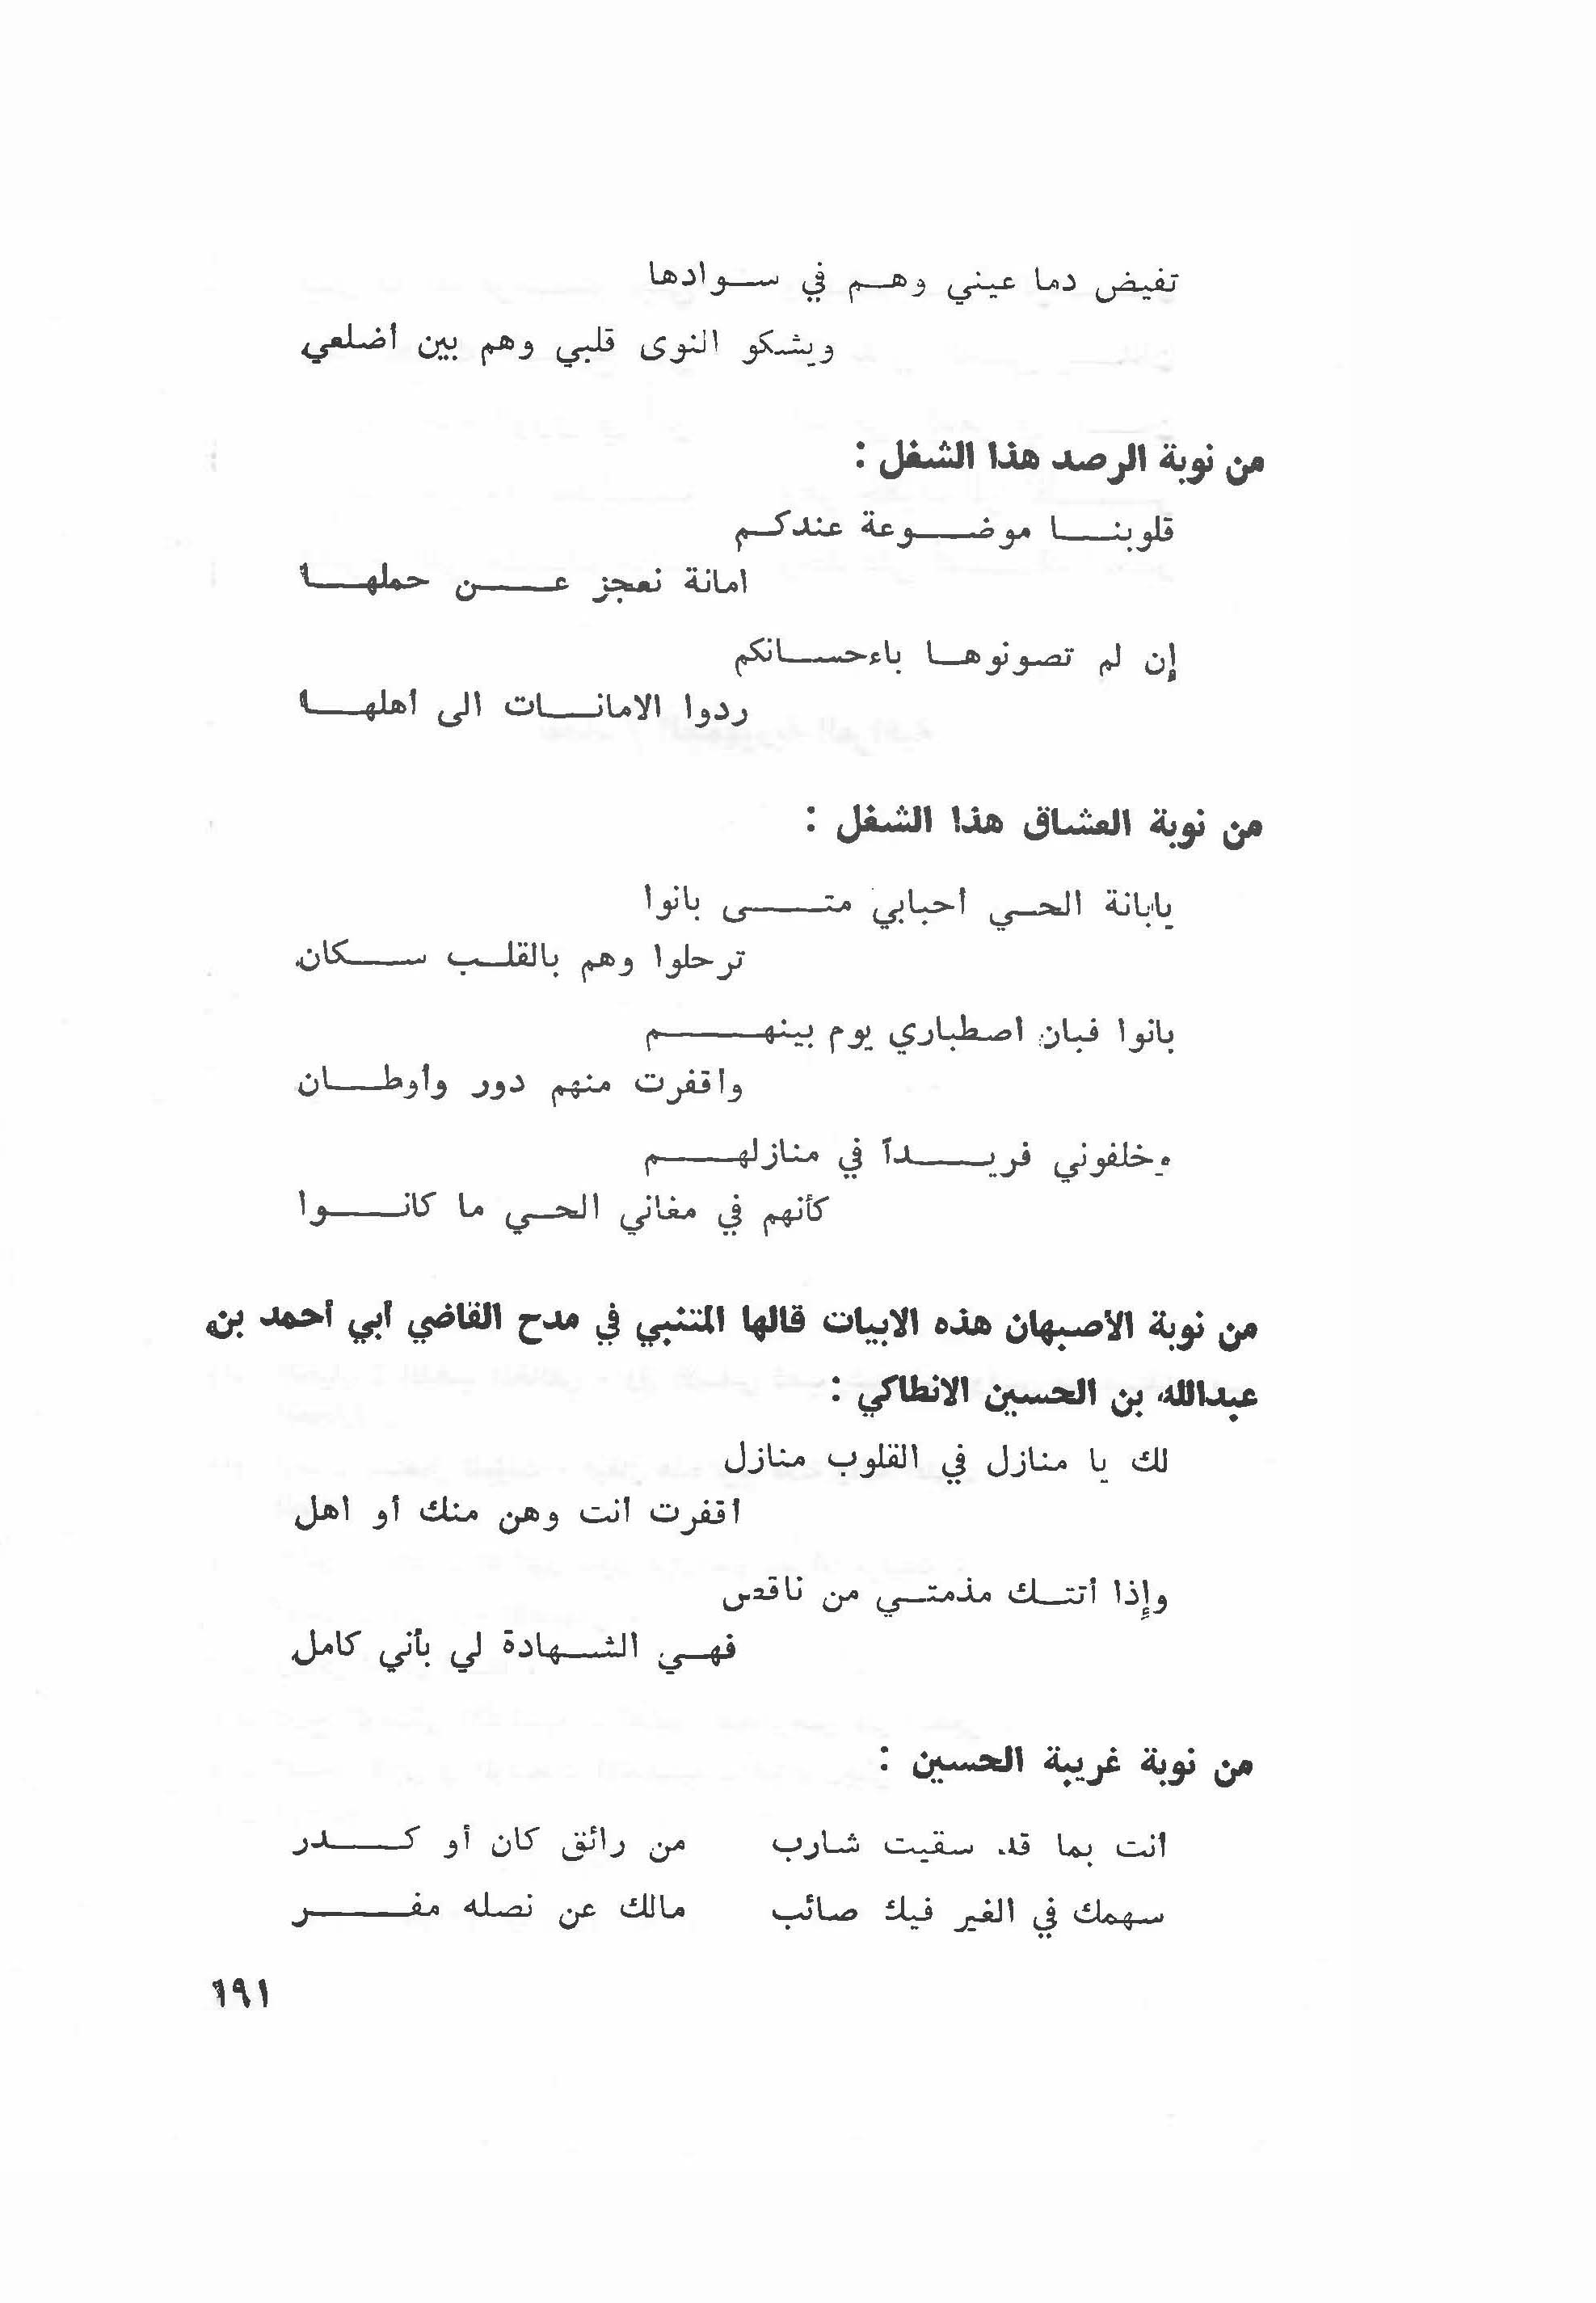 تفيض دما عيني وهم في سوادها
ويشكو النوى قلبي وهم بين أضلعي
من نوبة الرصد هذا الشغل :
قلوبنا موضوعة عندكم
امانة نعجز عن حملها
إن لم تصونوها باءحسانكم
ردوا الامانات الى أهلها
من نوبة العشاق هذا الشغل :
يابانة الحي أحبابي متى بانوا
ترحلوا وهم بالقلب سكان
بانوا فبان اصطباري يوم بينهم
واقفرت منهم دور وأوطان
وخلفوني فريداً في منازلهم
كأنهم في مغاني الحي ما كانوا
من نوبة الأصبهان هذه الابيات قالها المتنبي في مدح القاضي أبي أحمد بن
عبدالله بن الحسين الانطاكي :
لك يا منازل في القلوب منازل
أقفرت أنت وهن منك أو اهل
وإذا أتتك مذمتي من ناقص
فهي الشهادة لي بأني كامل
من نوبة غريبة الحسين :
أنت بما قد سقيت شارب من رائق كان أو كدر
سهمك في الغير فيك صائب مالك عن نصله مفر
١٩١